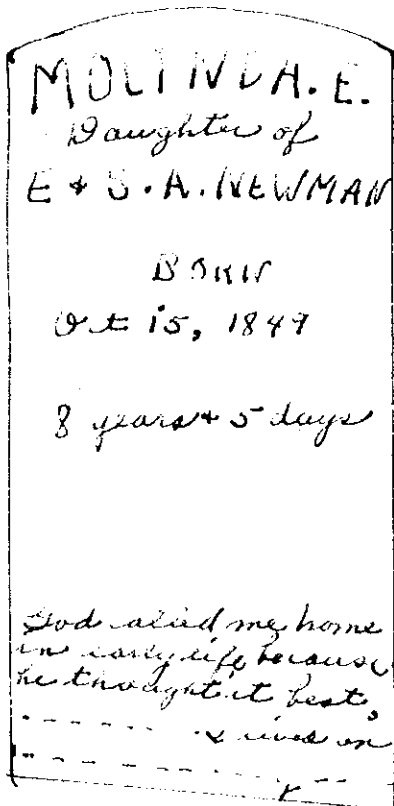 MOLINDA. E.
Daughter of
E + S. A. NEWMAN
BORN
Oct 15, 1849
8 years + 5 days
God called me home
in early life because
he thought it best,
on